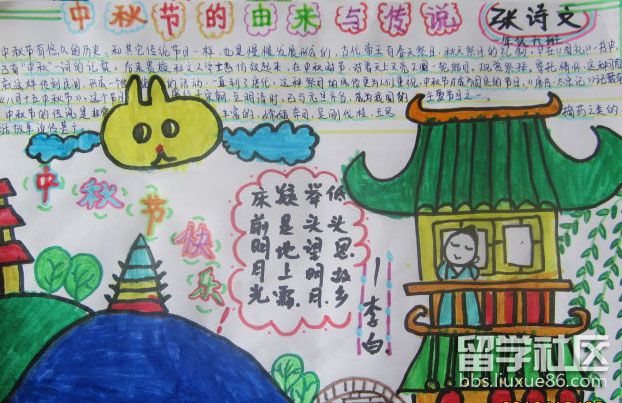 中秋节的由来与传说
张诗文
中秋节有悠久的历史，和其它传统节日一样，也是慢慢发展形成的，古代帝王有春天祭日，秋天祭月的礼制，早在《周礼》一书中，
已有“中秋”一词的记载。后来贵族和文人学士也仿效起来，在中秋时节，对着天上又亮又圆一轮皓月，观赏祭拜，寄托情怀，这种习俗
就这样传到民间，形成一个传统的活动，一直到了唐代，这种祭月的风俗更为人们重视，中秋节才成为固定的节日，《唐书·太宗记》记载有
“八月十五中秋节”，这个节 宋朝，至明清时，已与元旦齐名，成为我国的主要节日之一。
中秋节的传说是 丰富的，嫦娥奔月，吴刚伐桂，玉兔 捣药之类的
故事流传甚广。
中秋节快乐
床前明月光
疑是地上霜.
举头望明月.
低头思故乡
—李白.
留学社区
bbs.liuxue86.com